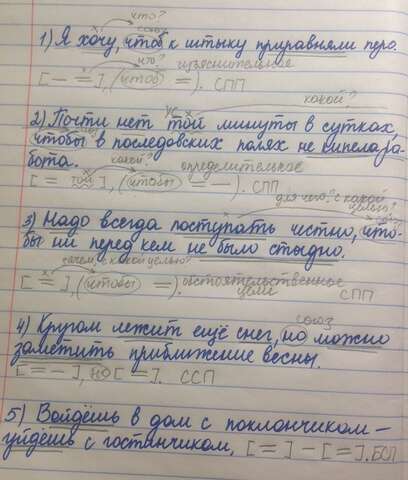 что?
союз
1) Я хочу, чтоб к штыку приравняли перо.
что? изъяснительное
[ – = ], (чтоб =). СПП
ук какой?
2) Почти нет той минуты в сутках,
чтобы в последовских полях не кипела ра-
бота.
какой? определительное
[ = той ], (чтобы = –). СПП
для чего? с какой
целью?
3) Надо всегда поступать честно, что-
бы ни перед кем не было стыдно.
зачем, с какой целью?
[ = ], (чтобы =). обстоятельственное
цели СПП
союз
4) Кругом лежит ещё снег, но можно
заметить приближение весны.
[ = – ], но [ = ]. ССП
5) Войдёшь в дом с поклончиком –
уйдёшь с гостинчиком, [ = ] – [ = ]. БСП